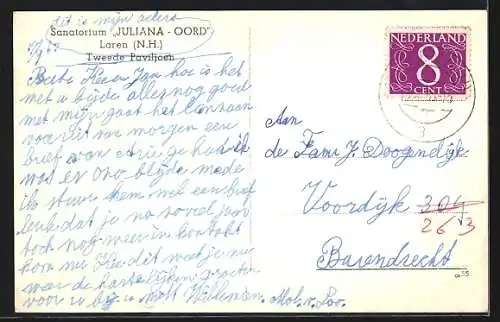 dit is mijn adres
Sanatorium "JULIANA - OORD"
Laren (N.H.)
Tweede Paviljoen
Beste Kee Jan hoe is het
met u bijde alles nog goed
met mijn gaat het langzaam
vooruit nu morgen een
brief van Arie gehad ik
was er zoo blijde mede
ik stuur hem wel een brief
leuk dat je na zoveel jaar
toch nog weer in kontakt
kom nu Kee dit weet je nu
weer de hartelijken groeten
voor u bij u mott Willemien. Mol. v. Loo.
NEDERLAND
8
CENT
Aan
de Fam J. Doogendijk
Voordijk 304
26 13
Barendrecht